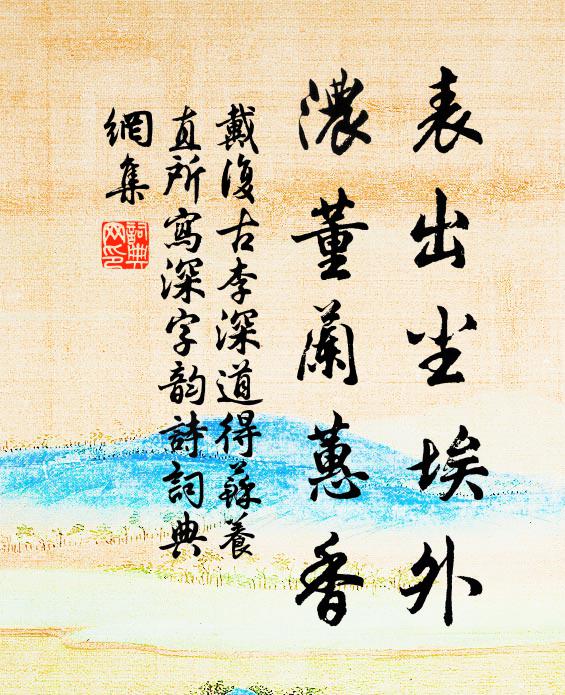 表出尘埃外
濃董蘭蕙香
戴復古李深道得蘇養
直所寫深字韵詩詞典
網集
詞典
网印